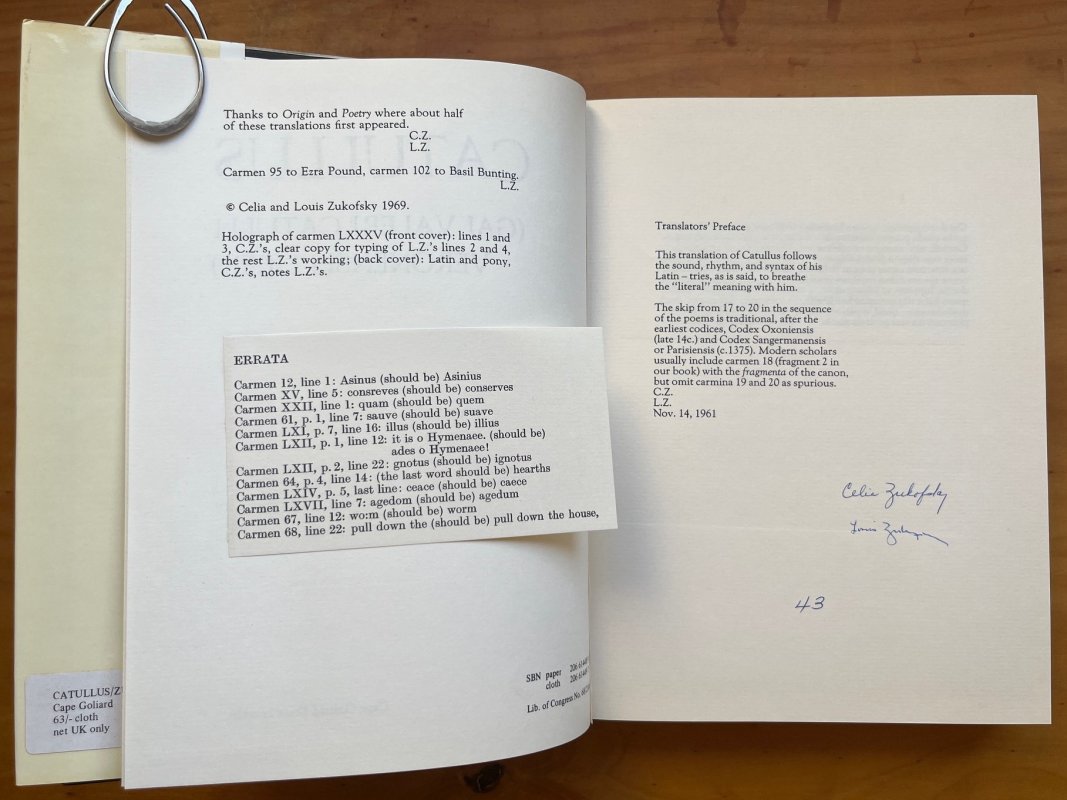 Thanks to Origin and Poetry where about half
of these translations first appeared.
C.Z.
L.Z.
Carmen 95 to Ezra Pound, carmen 102 to Basil Bunting.
L.Z.
© Celia and Louis Zukofsky 1969.
Holograph of carmen LXXXV (front cover): lines 1 and
3, C.Z.'s, clear copy for typing of L.Z.'s lines 2 and 4,
the rest L.Z.'s working; (back cover): Latin and pony,
C.Z.'s, notes L.Z.'s.
ERRATA
Carmen 12, line 1: Asinus (should be) Asinius
Carmen XV, line 5: consreves (should be) conserves
Carmen XXII, line 1: quam (should be) quem
Carmen 61, p. 1, line 7: sauve (should be) suave
Carmen LXI, p. 7, line 16: illus (should be) illius
Carmen LXII, p. 1, line 12: it is o Hymenaee. (should be)
ades o Hymenaee!
Carmen LXII, p. 2, line 22: gnotus (should be) ignotus
Carmen 64, p. 4, line 14: (the last word should be) hearths
Carmen LXIV, p. 5, last line: ceace (should be) caece
Carmen LXVII, line 7: agedom (should be) agedum
Carmen 67, line 12: wo:m (should be) worm
Carmen 68, line 22: pull down the (should be) pull down the house,
SBN paper 206
cloth 206
Lib. of Congress No.
CATULLUS/Z
Cape Goliard
63/- cloth
net UK only
Translators' Preface
This translation of Catullus follows
the sound, rhythm, and syntax of his
Latin – tries, as is said, to breathe
the "literal" meaning with him.
The skip from 17 to 20 in the sequence
of the poems is traditional, after the
earliest codices, Codex Oxoniensis
(late 14c.) and Codex Sangermanensis
or Parisiensis (c.1375). Modern scholars
usually include carmen 18 (fragment 2 in
our book) with the fragmenta of the canon,
but omit carmina 19 and 20 as spurious.
C.Z.
L.Z.
Nov. 14, 1961
Celia Zukofsky
Louis Zukofsky
43